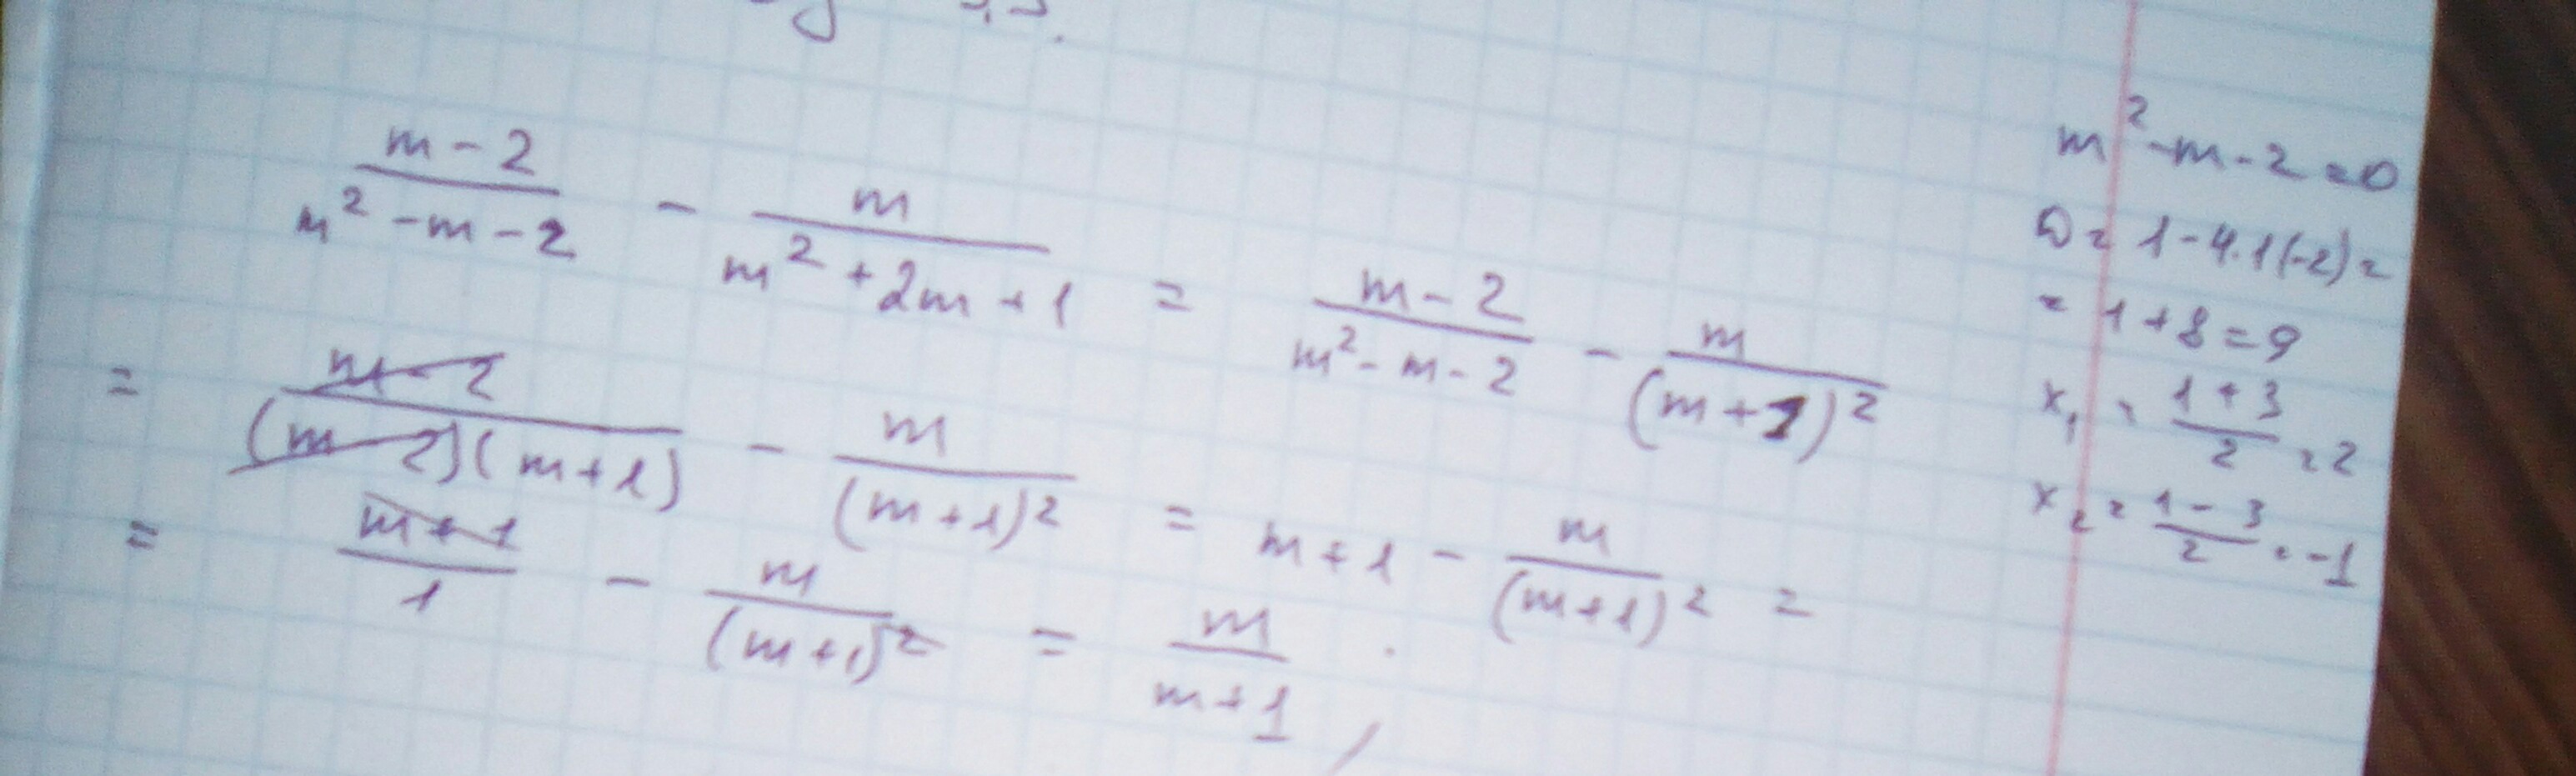 m-2/m²-m-2 - m/m²+2m+1 = m-2/m²-m-2 - m/(m+1)²
= m-2/(m-2)(m+1) - m/(m+1)² = m+1 - m/(m+1)² =
= m+1/1 - m/(m+1)² = m/m+1
m²-m-2=0
D=1-4·1(-2)=
=1+8=9
x₁=1+3/2=2
x₂=1-3/2=-1